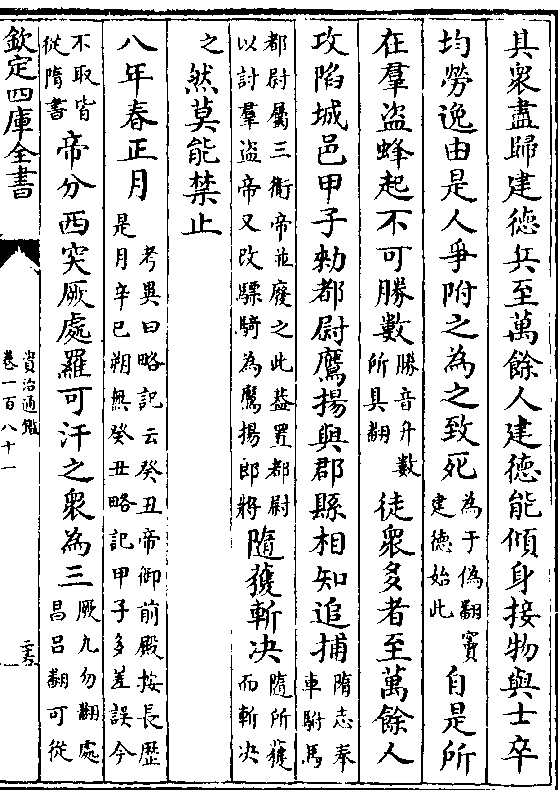 具衆盡歸建德兵至萬餘人建德能傾身接物與士卒
均勞逸由是人爭附之為之致死為于偽翻竇建德始此自是所
在羣盗蜂起不可勝數勝音升數所具翻徒衆多者至萬餘人
攻陷城邑甲子勅都尉鷹揚與郡縣相知追捕隋志奉車駙馬
都尉屬三衛帝並廢之此葢置都尉以討羣盗帝又改驃騎為鷹揚郎將隨獲斬决隨所獲而斬决
之然莫能禁止
八年春正月考異曰略記云癸丑帝御前殿按長歴是月辛巳朔無癸丑略記甲子多差誤今
不取皆從隋書帝分西突厥處羅可汗之衆為三厥九勿翻處昌吕翻可從
欽定四庫全書
資治通鑑
卷一百八十一